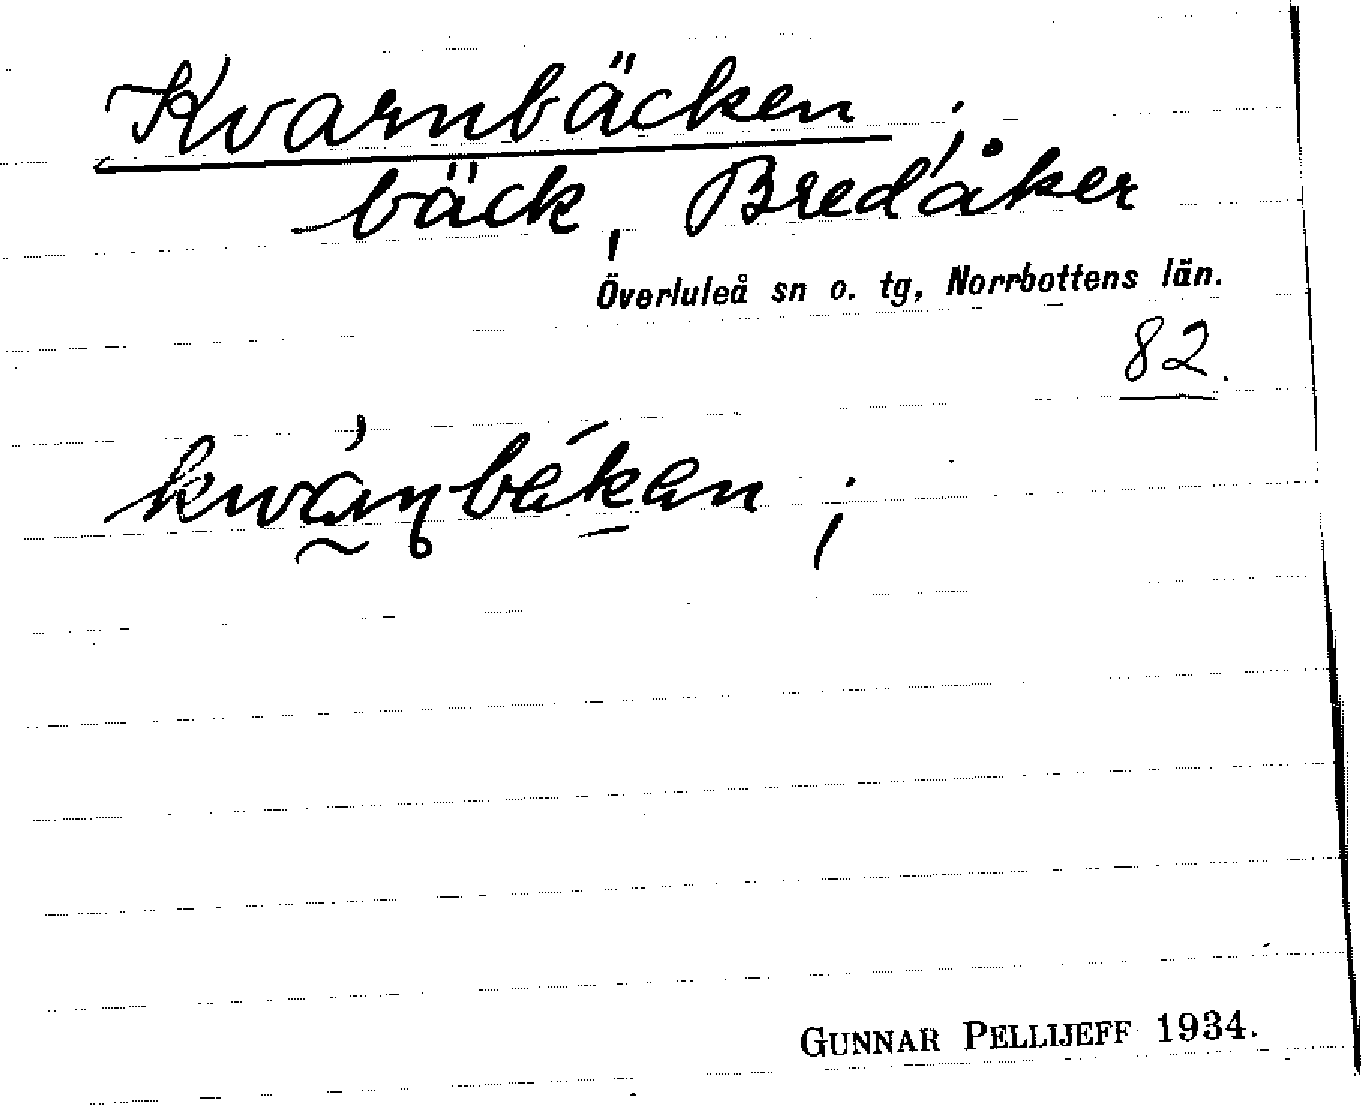 Kvarnbäcken;
bäck, Bredåker
Överluleå sn o. tg, Norrbottens län.
82.
kwáṇbékan;
GUNNAR PELLIJEFF 1934.